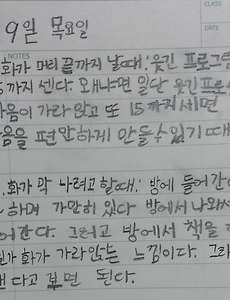 CLASS
DATE
9일 목요일
NOTES
화가 머리 끝까지 날때.' 웃긴 프로그
5까지 센다. 왜냐면 일단 웃긴프로
마음이 가라 앉고 또 15까지 세면
음을 편안하게 만들수 있기 때
화가 막 나려고 할때.' 방에 들어간
하며 가만히 있다 방에서 나와서
어간다. 그러고 방에서 책을
화가 가라앉는 느낌이다. 그래
다고 보면 된다.